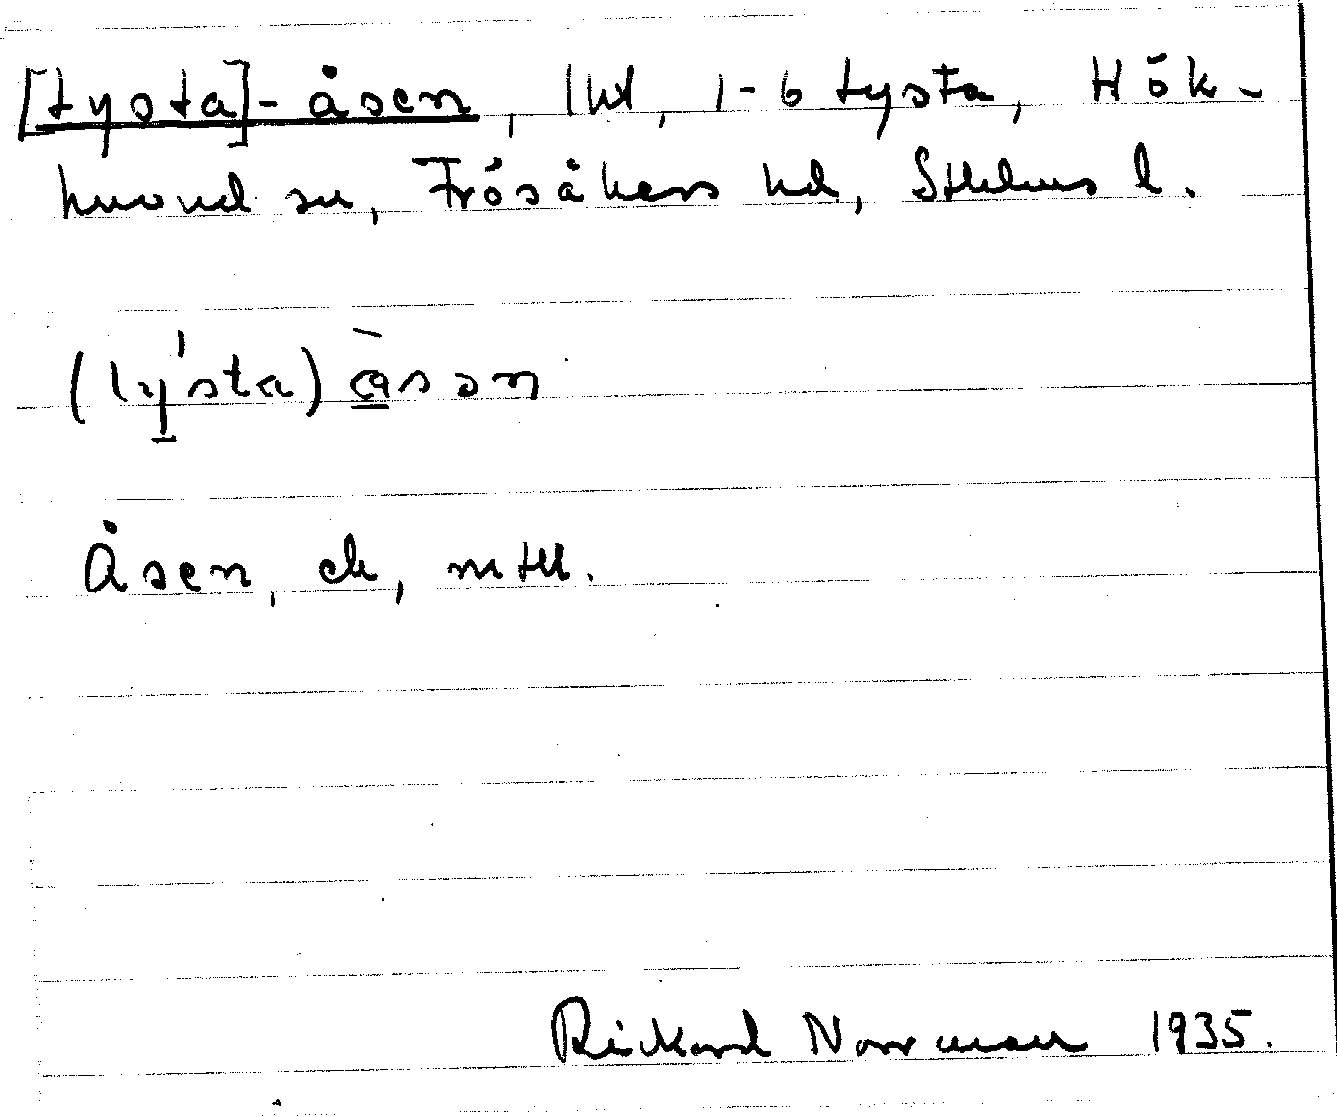 [tysta]-åsen, lht, 1-6 tysta, Hök-
huvud sn, Frösåkers hd, Sthlms l.
(tysta) åsən
Åsen, ek, mtll.
Rickard Norrman 1935.